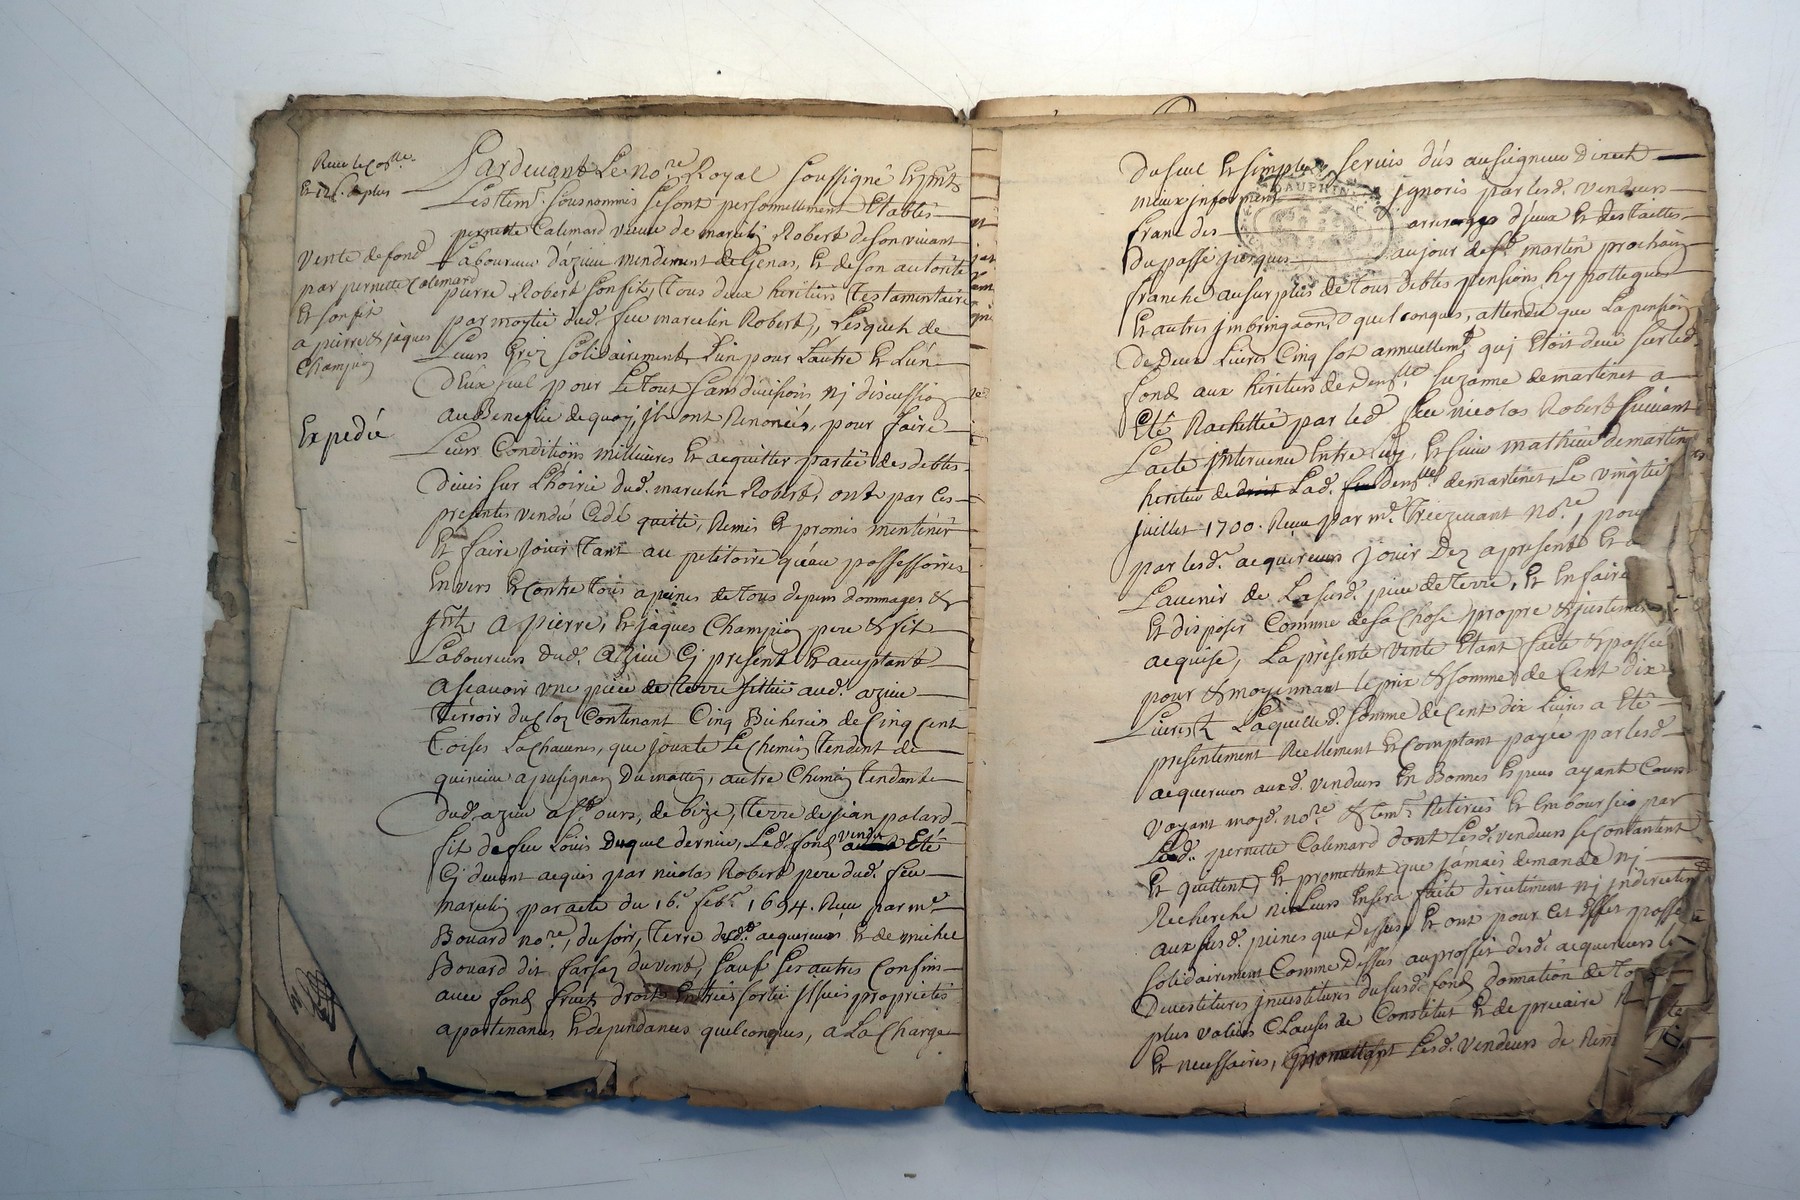 Vente de fond
par pernette Calemard
Et son fils
a pierre & jaques
Champion
Expedié
Pardevant Le no.re Royal soussigné Et pnts
Les tem. sousnommés se sont personnellement Etablis
pernette Calemard veuve de marcelin Robert de son vivant
Laboureur d'azieu mendement de Genas, Et de son autorité
pierre Robert son fils, tous deux heritiers testamentaires
par moytié dud. feu marcelin Robert, Lesquels de
Leurs Grez solidairement, L'un pour L'autre Et L'un
D'Eux seul pour Le tout sans division nj discussion
au Benefice de quoy, jls ont Renoncés, pour faire
Leurs Conditions millieures Et acquitter partie des debtes
deües sur L'hoirie dud. marcelin Robert, ont par ces
presentes vendu Cedé quitté, Remis Et promis mentenir
Et faire jouir tant au petitoire qu'au possessoire
Envers Et contre tous a peines de tous depens dommages &
jnts, a pierre, Et jaques Champion pere & fils
Laboureurs dud. azieu Cj present Et acceptant
ascavoir une piece de terre sittuée aud. azieu
terroir du Cloz Contenant Cinq Bicherées de Cinq Cent
toises La Chacune, que jouxte Le Chemin tendent de
a pusignan du mattin, autre Chemin tendant
dud. azieu a st ours, de bize, terre de jean palard
fils de feu Louis Duquel dernier, Led. fond vendu Eté
Cj devant acquis par nicolas Robert pere dud. feu
marcelin par acte du 16.e feb.r 1694. Reçu par m.e
Bouard no.re, du soir, terre desd. acquereurs Et de michel
Bouard dit du vent, sauf ses autres Confins
avec fond fruits droits Entrées sortie jssües proprietés
apartenances Et dependances quelconques, a La Charge
Du seul Et simple servis dûs au seigneur direct
mieux jnformé jgnorés par lesd. vendeurs
franc des arrerages d'jceux Et des tailles
du passé jusques au jour de st martin prochain
franche au surplus de tous debtes pensions hypotteques
Et autres quelconques, attendu que La pension
de Deux Livres Cinq sol annuellem.t quj Etoit deüe sur led.
fond aux heritiers de Dem.lle suzanne demartinet a
Eté Rachettée par led. feu nicolas Robert suivant
L'acte jntervenu Entre Luy, Et sieur mathieu demartinet
heritier de Lad. Dem.lle demartinet, Le vingtié
juillet 1700. Reçu par m.e no.re, pour
par lesd. acquereurs jouir Dez a present Et a
L'avenir de La susd. piece de terre, Et En faire
Et disposer Comme de sa Chose propre & justement
acquise, La presente vente Etant faite & passée
pour & moyennant le prix & somme de Cent dix
Livres, Laquelle d. somme de Cent dix Livres a Eté
presentement Reellement Et Comptant payée par lesd.
acquereurs auxd. vendeurs En Bonnes Especes ayant Cours
voyant mojd. no.re & tem. Retirées Et Emboursées par
Lad. pernette Calemard dont Lesd. vendeurs se Contantent
Et quittent, Et promettent que jamais demande nj
Recherche ne Leurs En sera faite directement nj jndirectem
aux susd. peines que Dessus, Et ont pour cet Effet passé
solidairement Comme Dessus au proffit desd. acquereurs
Devestitures jnvestitures du susd. fond donnation de
plus values Clauses de Constitut Et de precaire
Et necessaires, promettant Lesd. vendeurs de
DAUPHIN